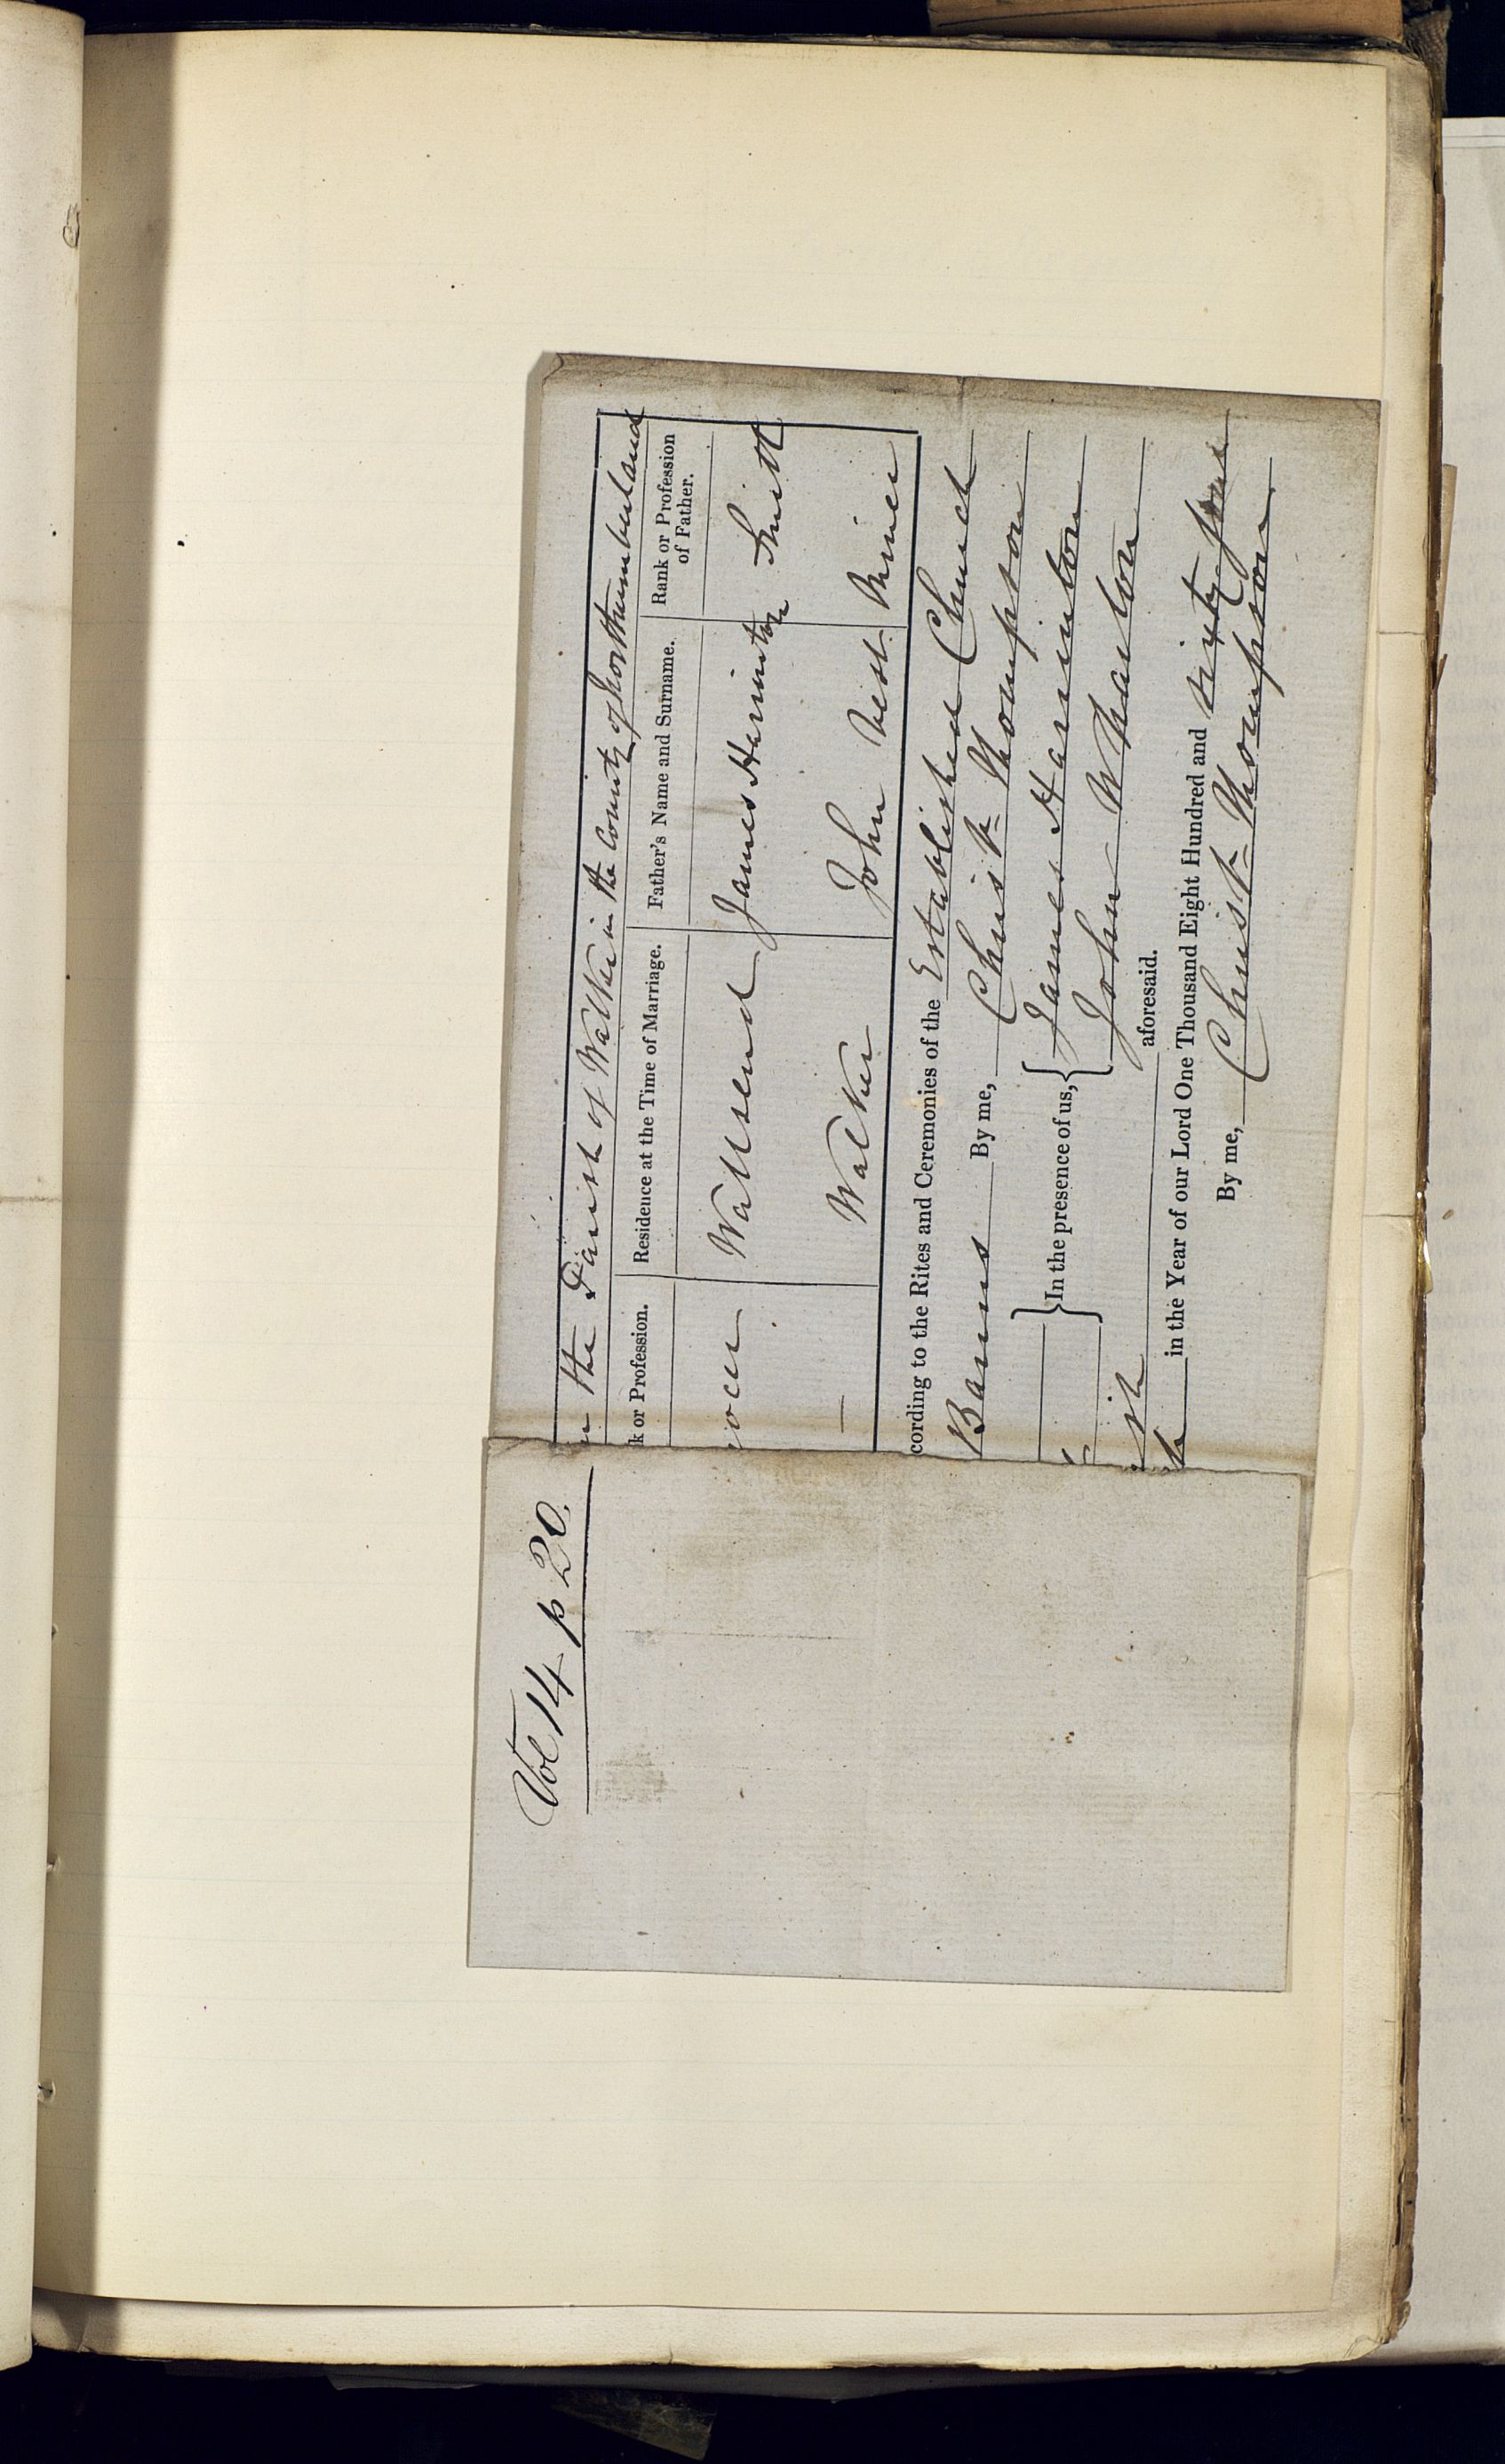 Vol 14 p 20.
the Parish of Walker in the County of Northumberland
k or Profession.
Residence at the Time of Marriage.
Father's Name and Surname.
Rank or Profession
of Father.
ocer Wallsend James Harrinton Smith
— Walker John Best Miner
cording to the Rites and Ceremonies of the Established Church
Banns By me, Christr Thompson
In the presence of us, James Harrinton
John Wharton
ish aforesaid.
in the Year of our Lord One Thousand Eight Hundred and sixty four
By me, Christr Thompson